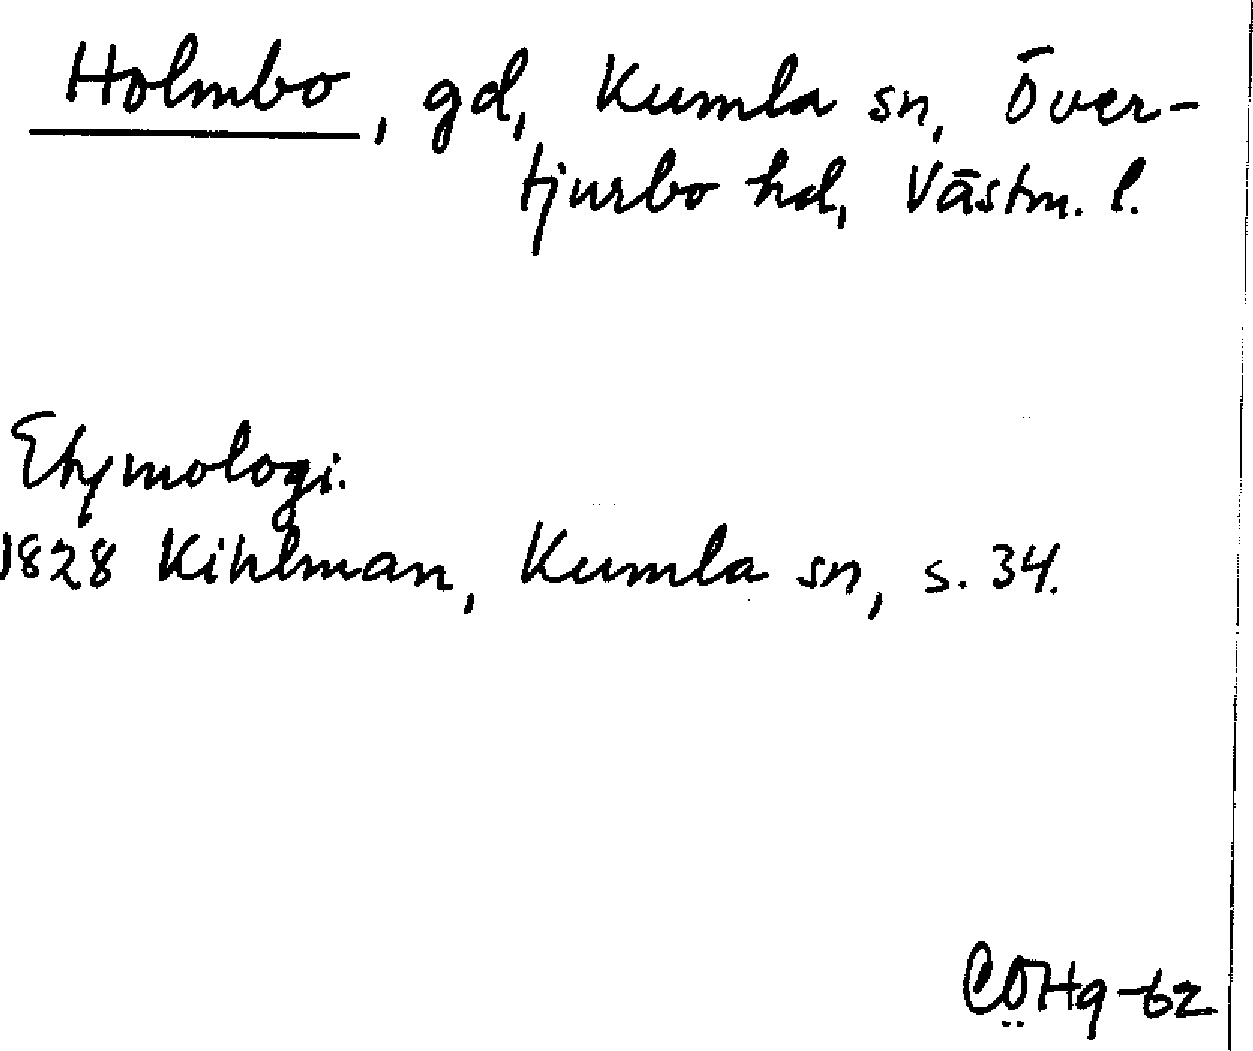 Holmbo, gd, Kumla sn, Över-
tjurbo hd, Västm. l.
Etymologi.
1828 Kihlman, Kumla sn, s. 34.
CÖHg -62